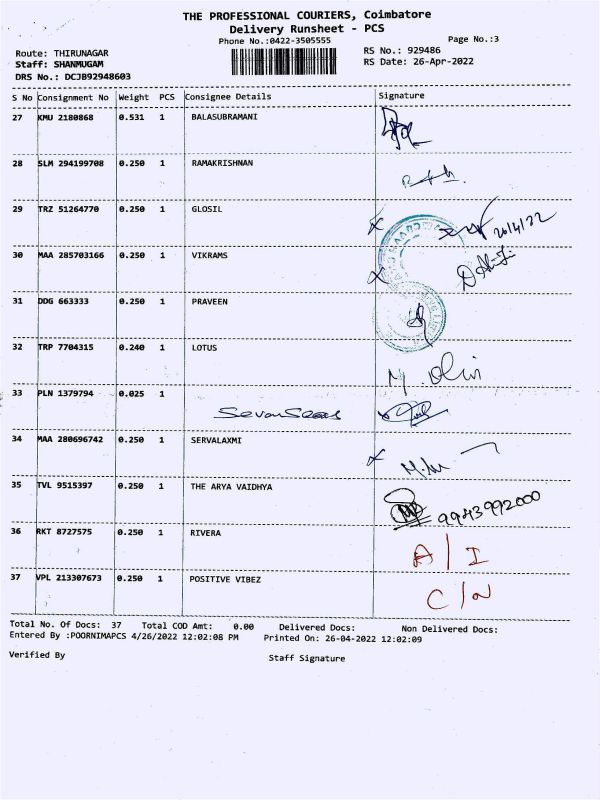 THE PROFESSIONAL COURIERS, Coimbatore
Delivery Runsheet - PCS
Phone No.:0422-3505555
Page No.:3
Route: THIRUNAGAR
RS No.: 929486
Staff: SHANMUGAM
RS Date: 26-Apr-2022
DRS No.: DCJB92948603
S No Consignment No Weight PCS Consignee Details Signature
27 KMU 2180868 0.531 1 BALASUBRAMANI
28 SLM 294199708 0.250 1 RAMAKRISHNAN
29 TRZ 51264770 0.250 1 GLOSIL 26/4/22
30 MAA 285703166 0.250 1 VIKRAMS
31 DDG 663333 0.250 1 PRAVEEN
32 TRP 7704315 0.240 1 LOTUS
33 PLN 1379794 0.025 1
34 MAA 280696742 0.250 1 SERVALAXMI
35 TVL 9515397 0.250 1 THE ARYA VAIDHYA 9943992000
36 RKT 8727575 0.250 1 RIVERA A/I
37 VPL 213307673 0.250 1 POSITIVE VIBEZ C/N
Total No. Of Docs: 37 Total COD Amt: 0.00 Delivered Docs: Non Delivered Docs:
Entered By :POORNIMAPCS 4/26/2022 12:02:08 PM Printed On: 26-04-2022 12:02:09
Verified By Staff Signature